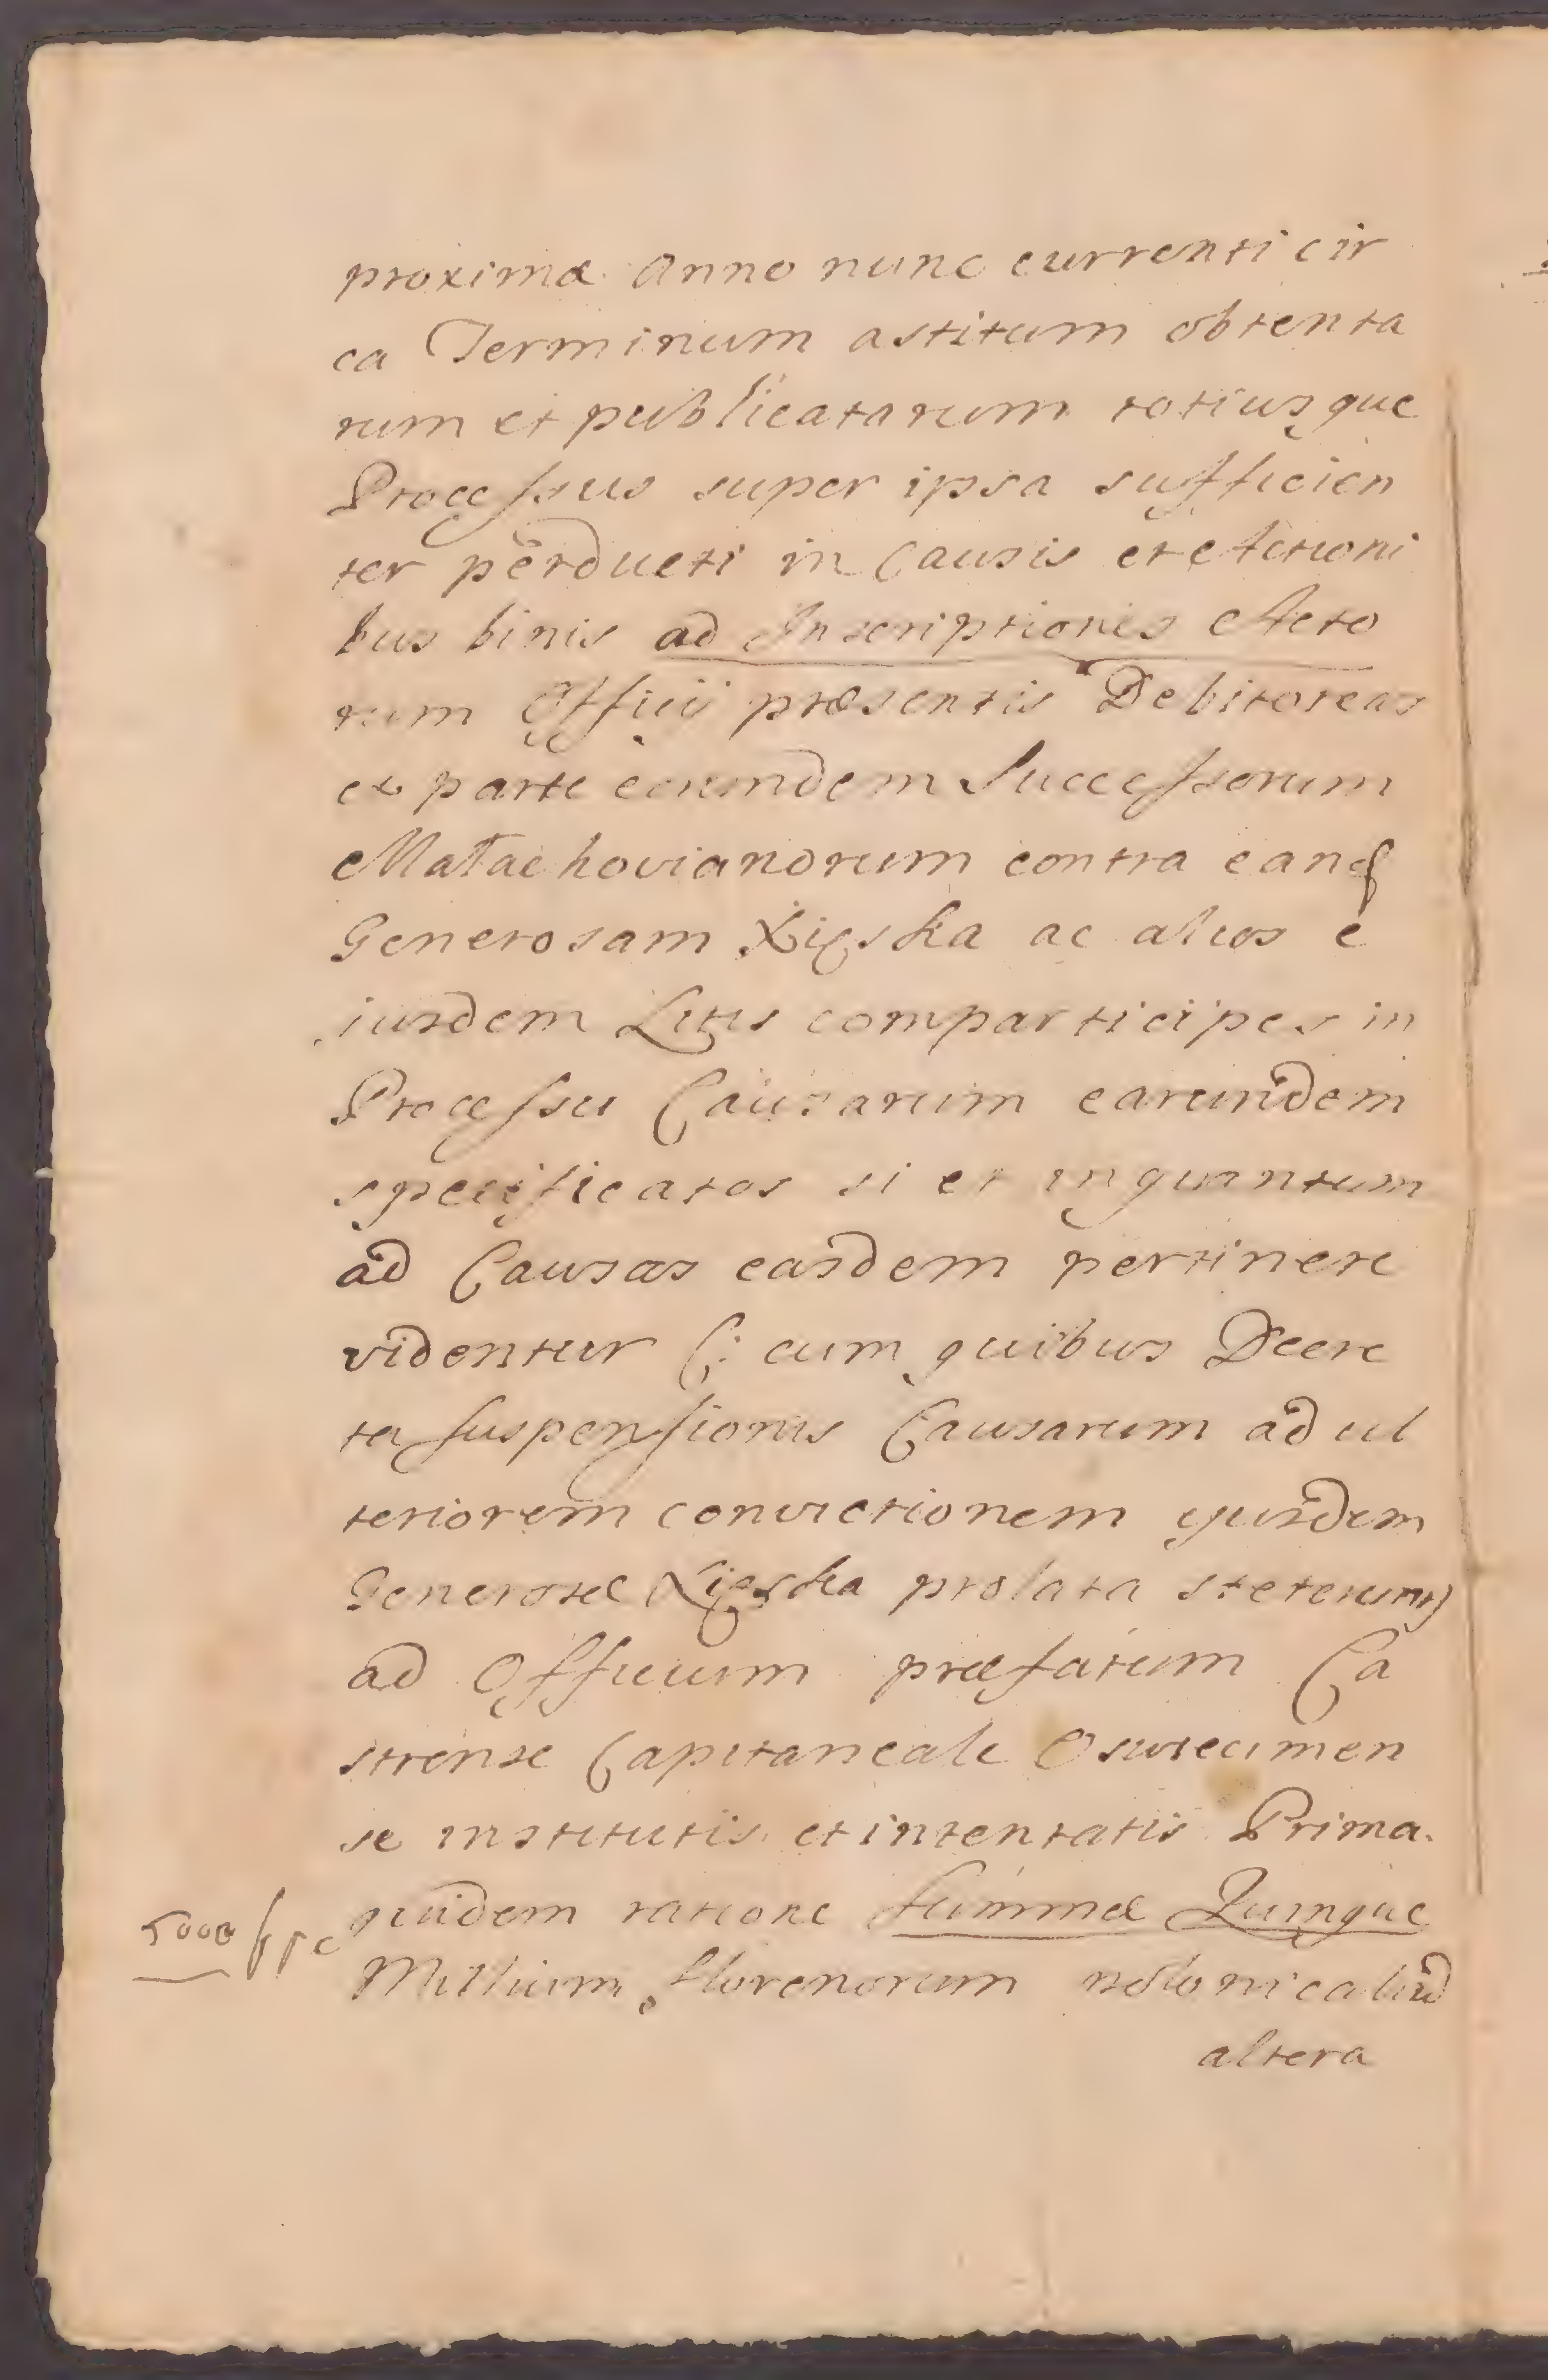 proximæ Anno nunc currenti cir
ca Terminum astitum obtenta
rum et publicatarum totiusque
Processus super ipsa sufficien
ter perducti in Causis et Actioni
bus binis ad Inscriptiones Acto
rum Officij præsentis Debitoreas
ex parte eorundem Successorum
Małachovianorum contra eand
Generosam Xięska ac alios e
iusdem Litis comparticipes in
Processu Causarum earundem
specificatos si et inquantum
ad Causas easdem pertinere
videntur (: cum quibus Decre
ta suspensionis Causarum ad ul
teriorem convictionem ejusdem
Generosæ Xięska prolata steterunt)
ad Officium præfatum Ca
strense Capitaneale Oswiecimen
se institutis et intentatis Prima
quidem ratione summæ Quinque
Millium florenorum polonicalium
altera
5000